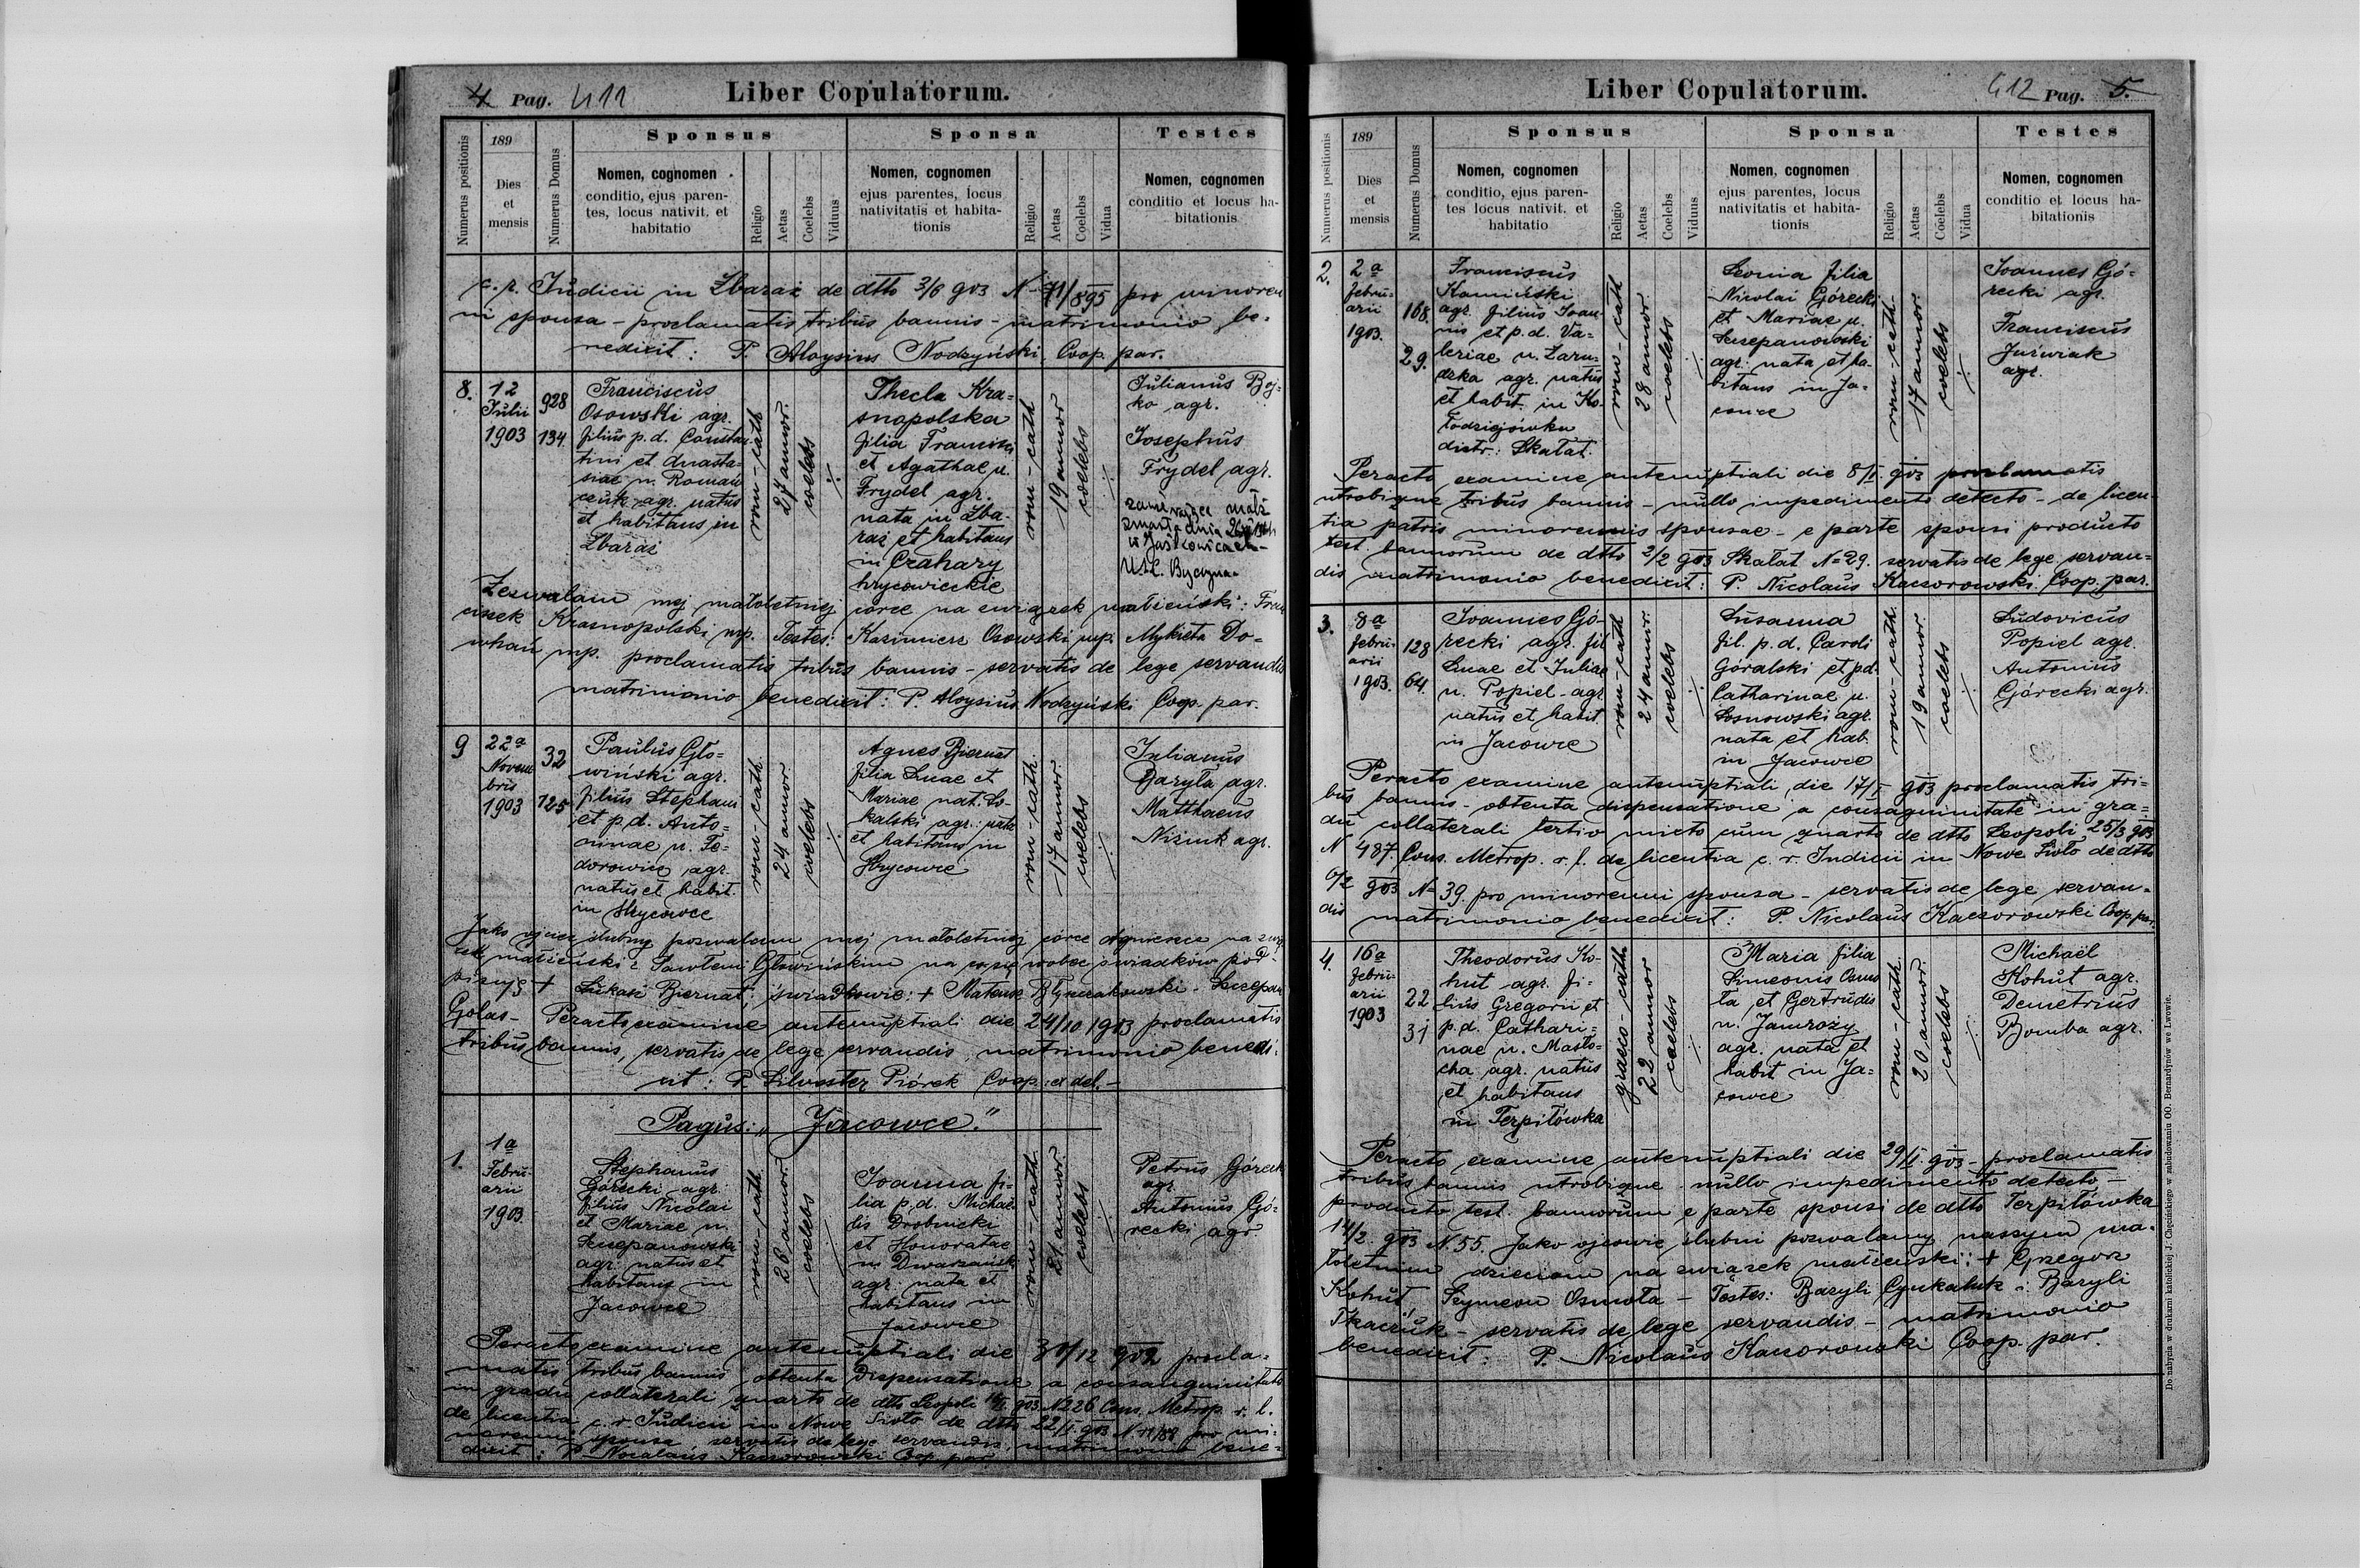 4 Pag. 411
Liber Copulatorum.
Numerus positionis
189
Dies
et
mensis
Numerus Domus
Sponsus
Nomen, cognomen
conditio, ejus paren-
tes, locus nativit. et
habitatio
Religio
Aetas
Coelebs
Viduus
Sponsa
Nomen, cognomen
ejus parentes, locus
nativitatis et habita-
tionis
Religio
Aetas
Coelebs
Vidua
Testes
Nomen, cognomen
conditio et locus ha-
bitationis
Judicii in Zbaraż de dtto 3/6 903 N 71/895 pro minoren
ni sponsa - proclamatis tribus bannis - matrimonio be-
nedixit: P. Aloysius Nodzyński Coop. par.
8.
12
Julii
1903
928
134
Franciscus
Osowski agr.
filius p. d. Constan
tini et Anasta-
siae n. Roman
czuk agr. natus
et habitans in
Zbaraż
rom-cath
27 annor.
coelebs
Thecla Kra-
snopolska
filia Francisci
et Agathae n.
Frydel agr.
nata in Zba-
raż et habitans
in Czahary
hrycowieckie
rom-cath
19 annor
coelebs
Julianus Boj-
ko agr.
Josephus
Frydel agr.
zmarła dnia
w Jaśkowicach -
USC. Byczyna
Zezwalam mej małoletniej córce na związek małżeński: Fran
ciszek Krasnopolski mp. Testes: Kazimierz Osowski mp. Mykieta Do-
whań mp. proclamatis tribus bannis - servatis de lege servandis
matrimonio benedixit: P. Aloysius Nodzyński Coop. par.
9
22a
Novem
bris
1903
32
125
Paulus Gło-
wiński agr.
filius Stephani
et p. d. Anto-
ninae n. Fe-
dorowicz agr.
natus et habit.
in Hrycowce
rom-cath
24 annor
coelebs
Agnes Biernat
filia Lucae et
Mariae nat. So-
kalski agr. nata
et habitans in
Hrycowce
rom-cath
17 annor
coelebs
Julianus
Baryła agr.
Matthaeus
Niziuk agr.
Jako ojciec ślubny pozwalam mej małoletniej córce Agnieszce na związ
ek małżeński z Pawłem Głowińskim na co się wobec świadków pod-
pisuję + Łukasz Biernat, świadkowie: + Mateusz Błyszczakowski - Szczepan
Golas - Peracto examine antenuptiali die 24/10 1903 proclamatis
tribus bannis, servatis de lege servandis, matrimonio benedi-
xit: P. Silvester Piórek Coop. ex del. -
Pagus: "Jacowce."
1.
1a
Febru-
arii
1903
Stephanus
Górecki agr.
filius Nicolai
et Mariae n.
Szczepanowski
agr. natus et
habitans in
Jacowce
rom-cath
26 annor
coelebs
Joanna fi-
lia p. d. Michae-
lis Drobnicki
et Honoratae
n. Dwarzański
agr. nata et
habitans in
Jacowce
rom-cath
21 annor
coelebs
Petrus Górecki
agr.
Antonius Gó-
recki agr.
Peracto examine antenuptiali die 30/12 902 procla-
matis tribus bannis obtenta Dispensatione a consanguinitate
in gradu collaterali quarto de dtto Leopoli 903 N 226 Cons. Metrop. r. l.
de licentia c. r. Judicii in Nowe Sioło de dtto 22/I 903 N 11/88 pro mi-
norenni sponsa servatis de lege servandis, matrimonio bene-
dixit: P. Nicolaus Kaczorowski Coop. par
Liber Copulatorum.
412 Pag. 5.
Numerus positionis
189
Dies
et
mensis
Numerus Domus
Sponsus
Nomen, cognomen
conditio, ejus paren-
tes locus nativit. et
habitatio
Religio
Aetas
Coelebs
Viduus
Sponsa
Nomen, cognomen
ejus parentes, locus
nativitatis et habita-
tionis
Religio
Aetas
Coelebs
Vidua
Testes
Nomen, cognomen
conditio et locus ha-
bitationis
2.
2a
Febru-
arii
1903.
168.
29.
Franciscus
Kamiński
agr. filius Joan-
nis et p. d. Va-
leriae n. Zaru-
dzka agr. natus
et habit. in Ko-
łodziejówka
distr. Skałat.
rom-cath
28 annor
coelebs
Leonia filia
Nicolai Górecki
et Mariae n.
Szczepanowski
agr. nata et ha-
bitans in Ja-
cowce
rom-cath.
17 annor
coelebs
Joannes Gó-
recki agr.
Franciscus
Juświak
agr.
Peracto examine antenuptiali die 8/I. 903 proclamatis
utrobique tribus bannis - nullo impedimento detecto - de licen-
tia patris minorennis sponsae - e parte sponsi producto
test. bannorum de dtto 2/2 903 Skałat N=29. servatis de lege servan-
dis matrimonio benedixit: P. Nicolaus Kaczorowski Coop. par.
3.
8a
Febru-
arii
1903.
128
64.
Joannes Gó-
recki agr. fil
Lucae et Juliae
n. Popiel - agr
natus et habit.
in Jacowce
rom-cath
24 annor.
coelebs
Susanna
fil. p. d. Caroli
Góralski et p.d.
Catharinae n.
Sosnowski agr.
nata et hab.
in Jacowce
rom-cath.
19 annor
coelebs
Ludovicus
Popiel agr.
Antonius
Górecki agr.
Peracto examine antenuptiali die 17/I 903 proclamatis tri-
bus bannis - obtenta dispensatione a consaguinitate in gra-
du collaterali tertio mixto cum quarto de dtto Leopoli 25/3 903
N 487. Cons. Metrop. r. l. de licentia c. r. Judicii in Nowe Sioło de dtto
9/2 903 N= 39. pro minorenni sponsa - servatis de lege servan-
dis matrimonio benedixit: P. Nicolaus Kaczorowski Coop par.
4.
16a
Febru-
arii
1903
22
31
Theodorus Ko-
hut agr. fi-
lius Gregorii et
p. d. Cathari-
nae n. Masło-
cha agr. natus
et habitans
in Terpiłówka
graeco-cath
22 annor
coelebs
Maria filia
Simeonis Osmo
ta et Gertrudis
n. Jamroży
agr. nata et
habit in Ja-
cowce
rom-cath.
20 annor.
coelebs
Michaël
Kohut agr.
Demetrius
Bomba agr.
Peracto examine antenuptiali die 29/I. 903 - proclamatis
tribus bannis utrobique - nullo impedimento detecto -
producto test. bannorum e parte sponsi de dtto Terpiłówka
14/2. 903 N. 55. Jako ojcowie ślubni pozwalamy naszym ma-
łoletnim dzieciom na związek małżeński: + Grzegorz
Kohut, Szymeon Osmota - Testes: Bazyli Cyukaluk i Bazyli
Tkaczuk - servatis de lege servandis - matrimonio
benedixit: P. Nicolaus Kaczorowski Coop. par.
Do nabycia w drukarni katolickiej J. Chęcińskiego w zabudowaniu OO. Bernardynów we Lwowie.